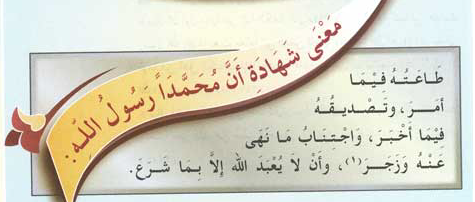 مَعْنَى شَهَادَةِ أَنَّ مُحَمَّدَاً رَسُولُ اللَّهِ:
طَاعَتُهُ فِيْمَا
أَمَرَ، وَتَصْدِيقُهُ
فِيْمَا أَخْبَرَ، وَاجْتنَابُ مَا نَهَى
عَنْهُ وَزَجَرَ(١)، وَأَنْ لاَ يُعْبَدَ الله إِلاَّ بِمَا شَرَعَ.